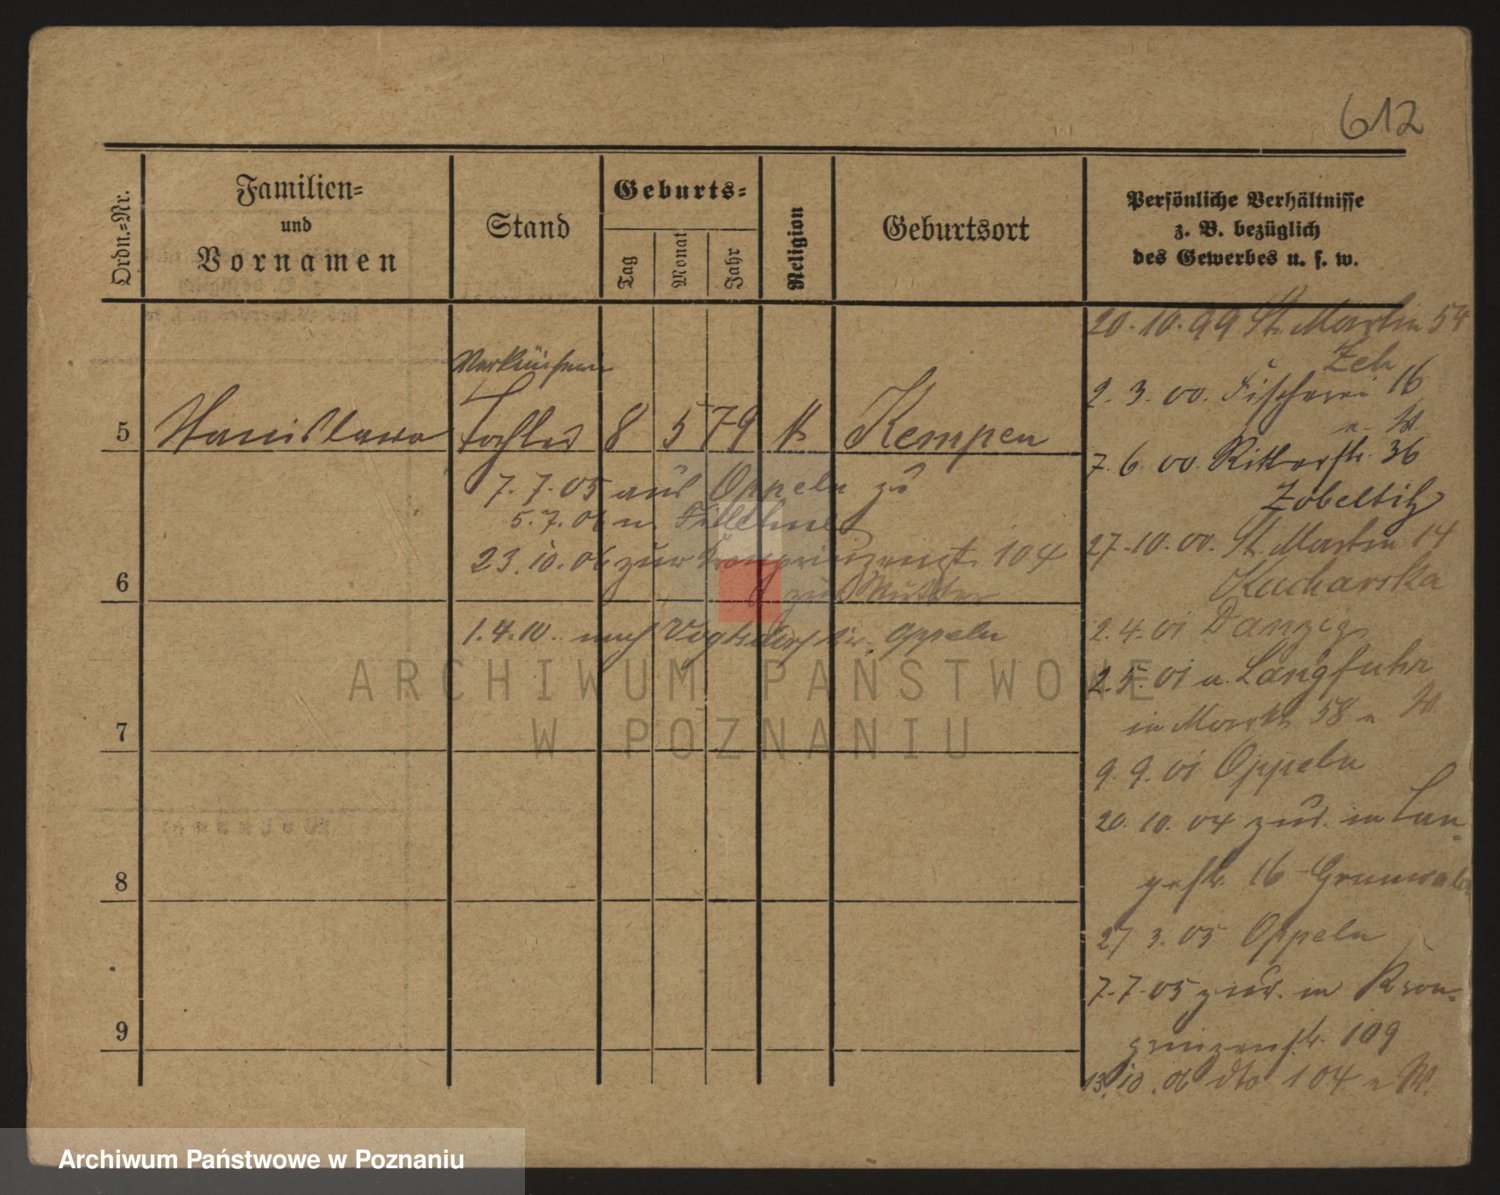 612
Ordn.=Nr.
Familien=
und
Vornamen
Stand
Geburts=
Tag
Monat
Jahr
Religion
Geburtsort
Persönliche Verhältnisse
z. B. bezüglich
des Gewerbes u. s. w.
Verkäuferin
5 Stanislawa Tochter 8 5 79 k Kempen
7. 7. 05 aus Oppeln zu
5. 7. 06 n.
23. 10. 06 zur Kronprinzenstr. 104
zur Mutter
6
1. 4. 10. nach Vogtsdorf Kr. Oppeln
7
8
9
20. 10. 99 St. Martin 54
Zeh
2. 3. 00. Fischerei 16
7. 6. 00. Ritterstr. 36
Zobeltitz
27. 10. 00. St. Martin 14
Kucharska
2. 4. 01 Danzig
2. 5. 01 n. Langfuhr
58
9. 9. 01 Oppeln
20. 10. 04 zur. in Lan-
gestr. 16 Grunwald
27 3. 05 Oppeln
7. 7. 05 zur. in Kron-
prinzenstr. 109
13. 10. 06 dto 104
ARCHIWUM PAŃSTWOWE
W POZNANIU
Archiwum Państwowe w Poznaniu